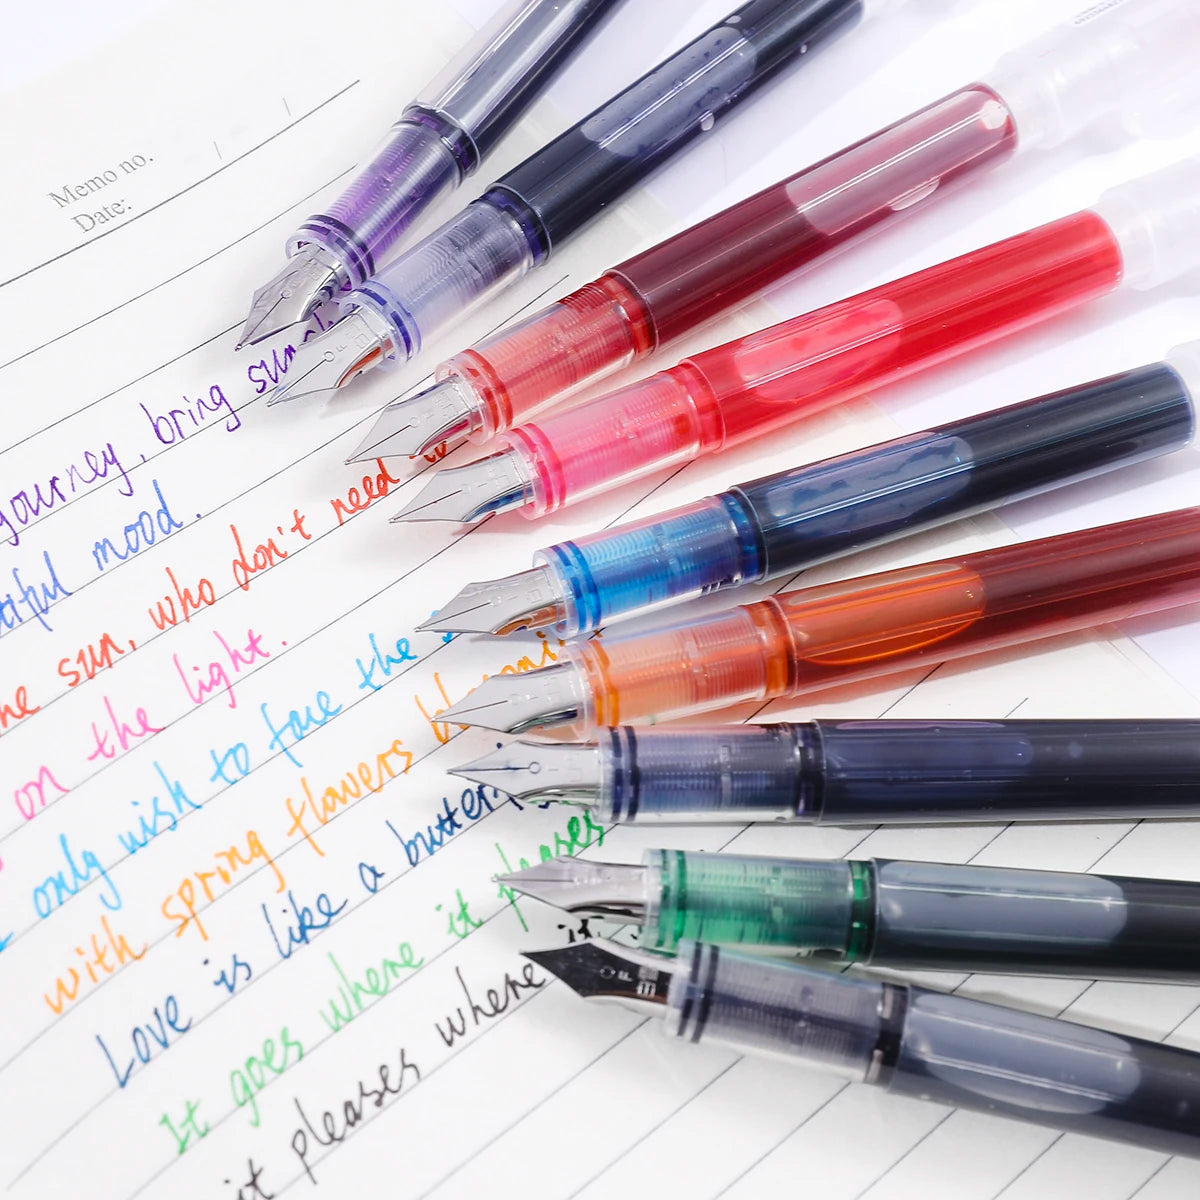 Memo no. / /
Date:
journey, bring sun
mood.
sun, who don't need to
on the light.
only wish to face the
with spring flowers
Love is like a butterf
It goes where it pleases
it pleases where it